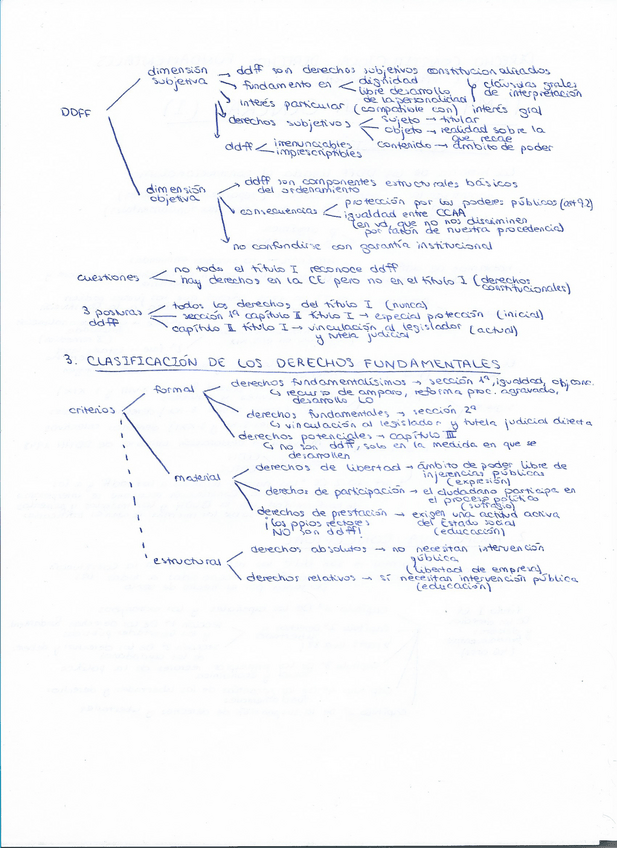 DDFF
dimensión subjetiva
→ ddff son derechos subjetivos constitucionalizados
→ fundamento en
dignidad
libre desarrollo de la personalidad
cláusulas grales de interpretación
interés particular (compatible con) interés gral
derechos subjetivos
sujeto → titular
objeto → realidad sobre la que recae
contenido → ámbito de poder
ddff
irrenunciables
imprescriptibles
dimensión objetiva
→ ddff son componentes estructurales básicos del ordenamiento
consecuencias
protección por los poderes públicos (art 9.2)
igualdad entre CCAA
(en vd, que no nos discriminen por razón de nuestra procedencia)
no confundirse con garantía institucional
cuestiones
no todo el título I reconoce ddff
hay derechos en la CE pero no en el título I (derechos constitucionales)
3 posturas ddff
todos los derechos del título I (nunca)
sección 1ª capítulo II título I → especial protección (inicial)
capítulo II título I → vinculación al legislador y tutela judicial (actual)
3. CLASIFICACIÓN DE LOS DERECHOS FUNDAMENTALES
criterios
formal
derechos fundamentalísimos → sección 1ª, igualdad, obj conc.
↳ recurso de amparo, reforma proc. agravado, desarrollo LO
derechos fundamentales → sección 2ª
↳ vinculación al legislador y tutela judicial directa
derechos potenciales → capítulo III
↳ no son ddff, solo en la medida en que se desarrollen
material
derechos de libertad → ámbito de poder libre de injerencias públicas (expresión)
derechos de participación → el ciudadano participa en el proceso político (sufragio)
derechos de prestación → exigen una actitud activa del Estado social (educación)
¡los ppios rectores NO son ddff!
estructural
derechos absolutos → no necesitan intervención pública (libertad de empresa)
derechos relativos → sí necesitan intervención pública (educación)